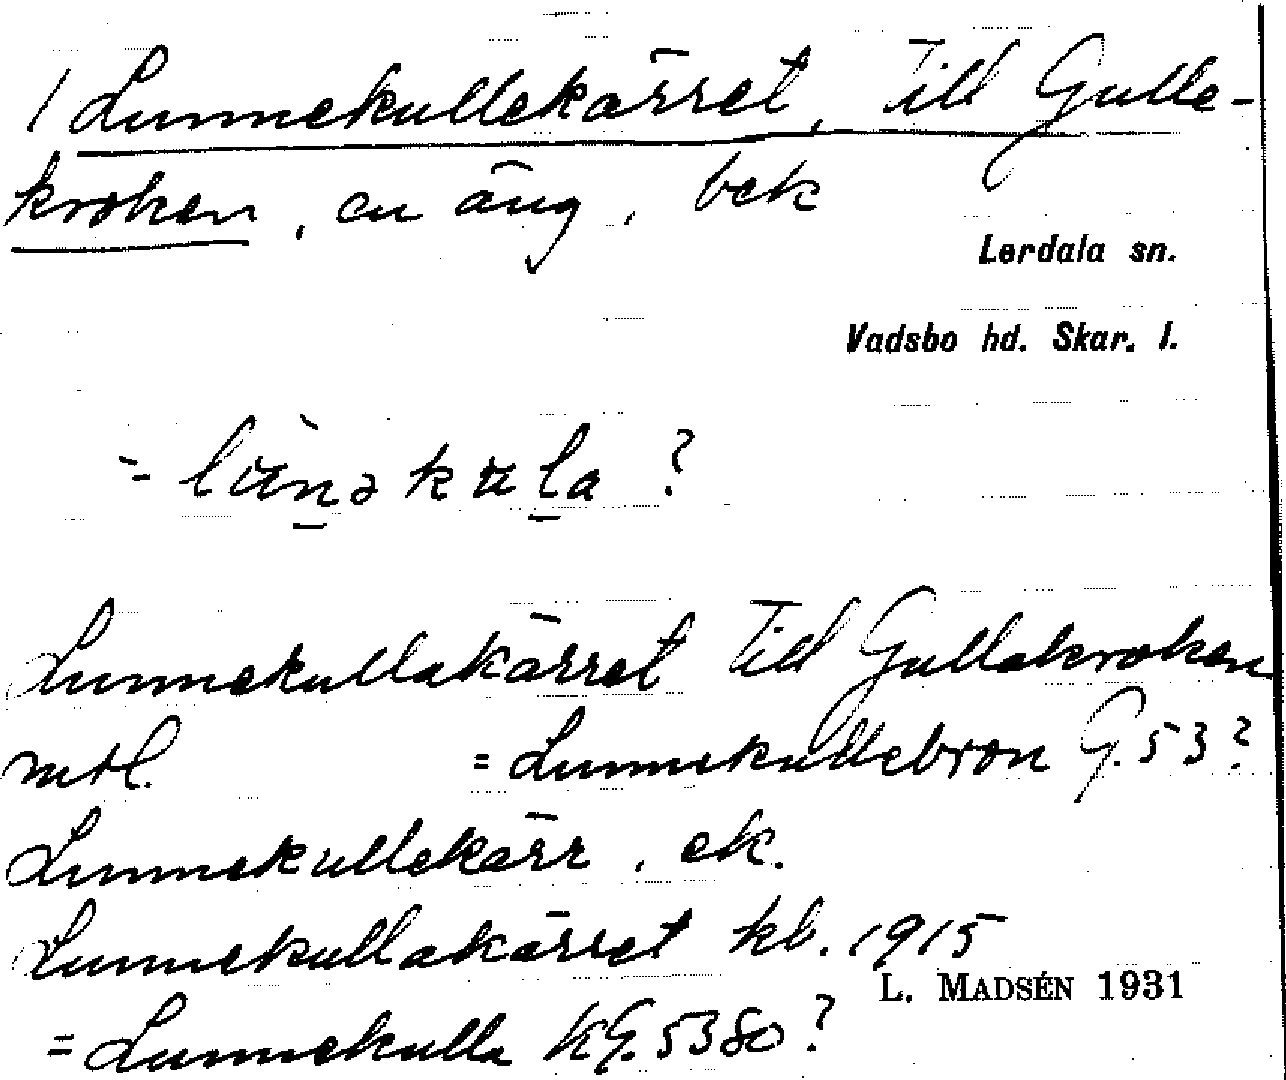 / Lunnekullekärret, till Gulle-
kroken, en äng, bek
Lerdala sn.
Vadsbo hd. Skar. l.
= ?
Lunnekullakärret till Gullakroken
mtl. = Lunnekullebron G. 53?
Lunnekullekärr, ek.
Lunnekullakärret kb. 1915
L. MADSÉN 1931
= Lunnekulla KG. 5380?